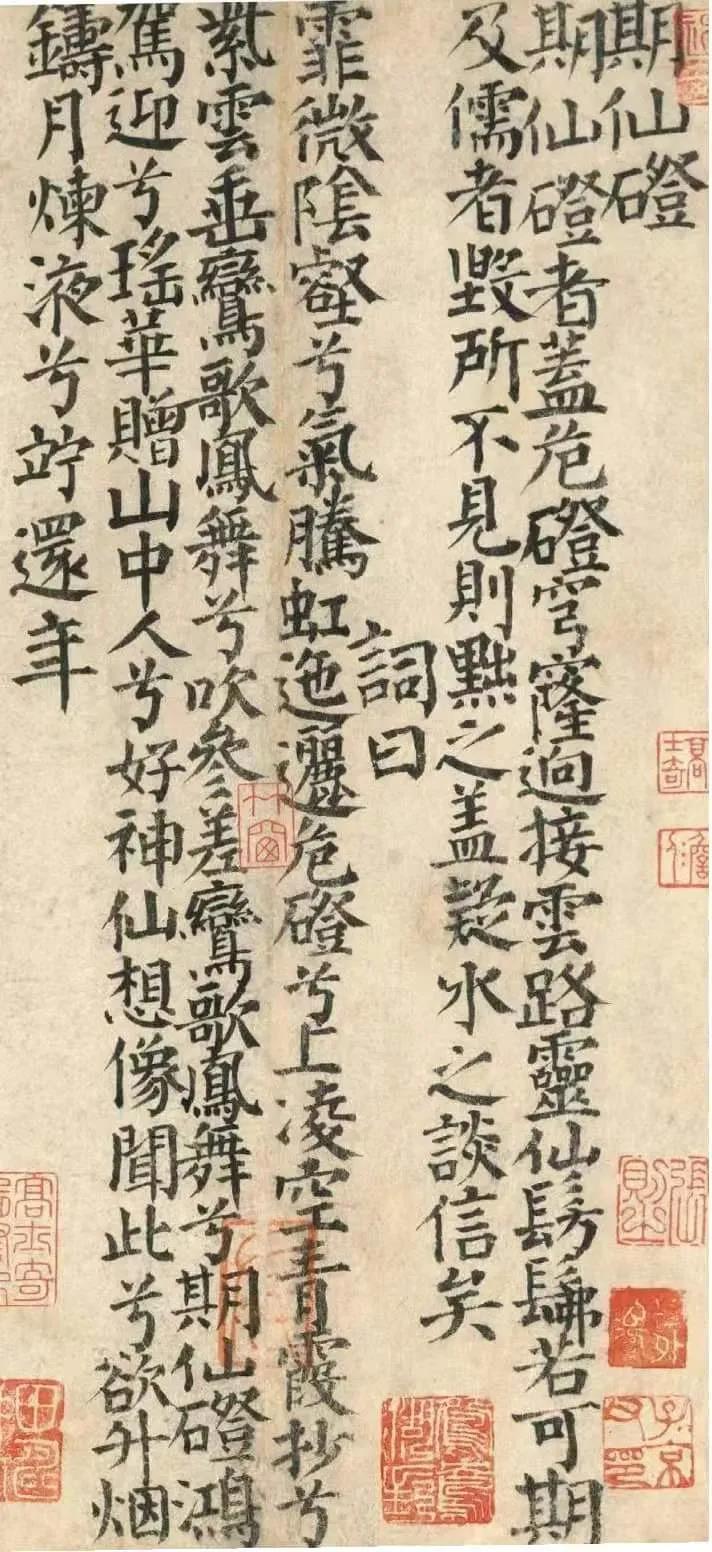 期仙磴
期仙磴者蓋危磴穹窿迥接雲路靈仙髣髴若可期
及儒者毀所不見則黜之蓋疑氷之談信矣
詞曰
霏微陰壑兮氣騰虹迤邐危磴兮上凌空青霞抄兮
紫雲垂鸞歌鳳舞兮吹參差鸞歌鳳舞兮期仙磴鴻
駕迎兮瑤華贈山中人兮好神仙想像聞此兮欲升烟
鑄月煉液兮竚還年